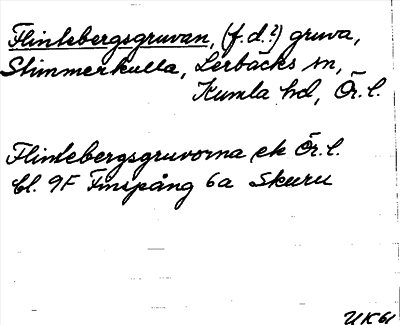 Flintebergsgruvan, (f.d.?) gruva,
Stimmerkulla, Lerbäcks sn,
Kumla hd, Ör. l.
Flintebergsgruvorna ek Ör. l.
bl. 9F Finspång 6a Skuru
UK61